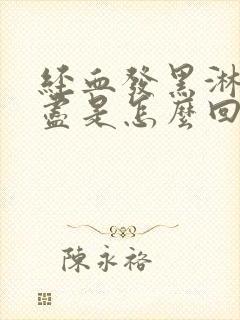 經血發黑淋
盡是怎麼回
陳永裕